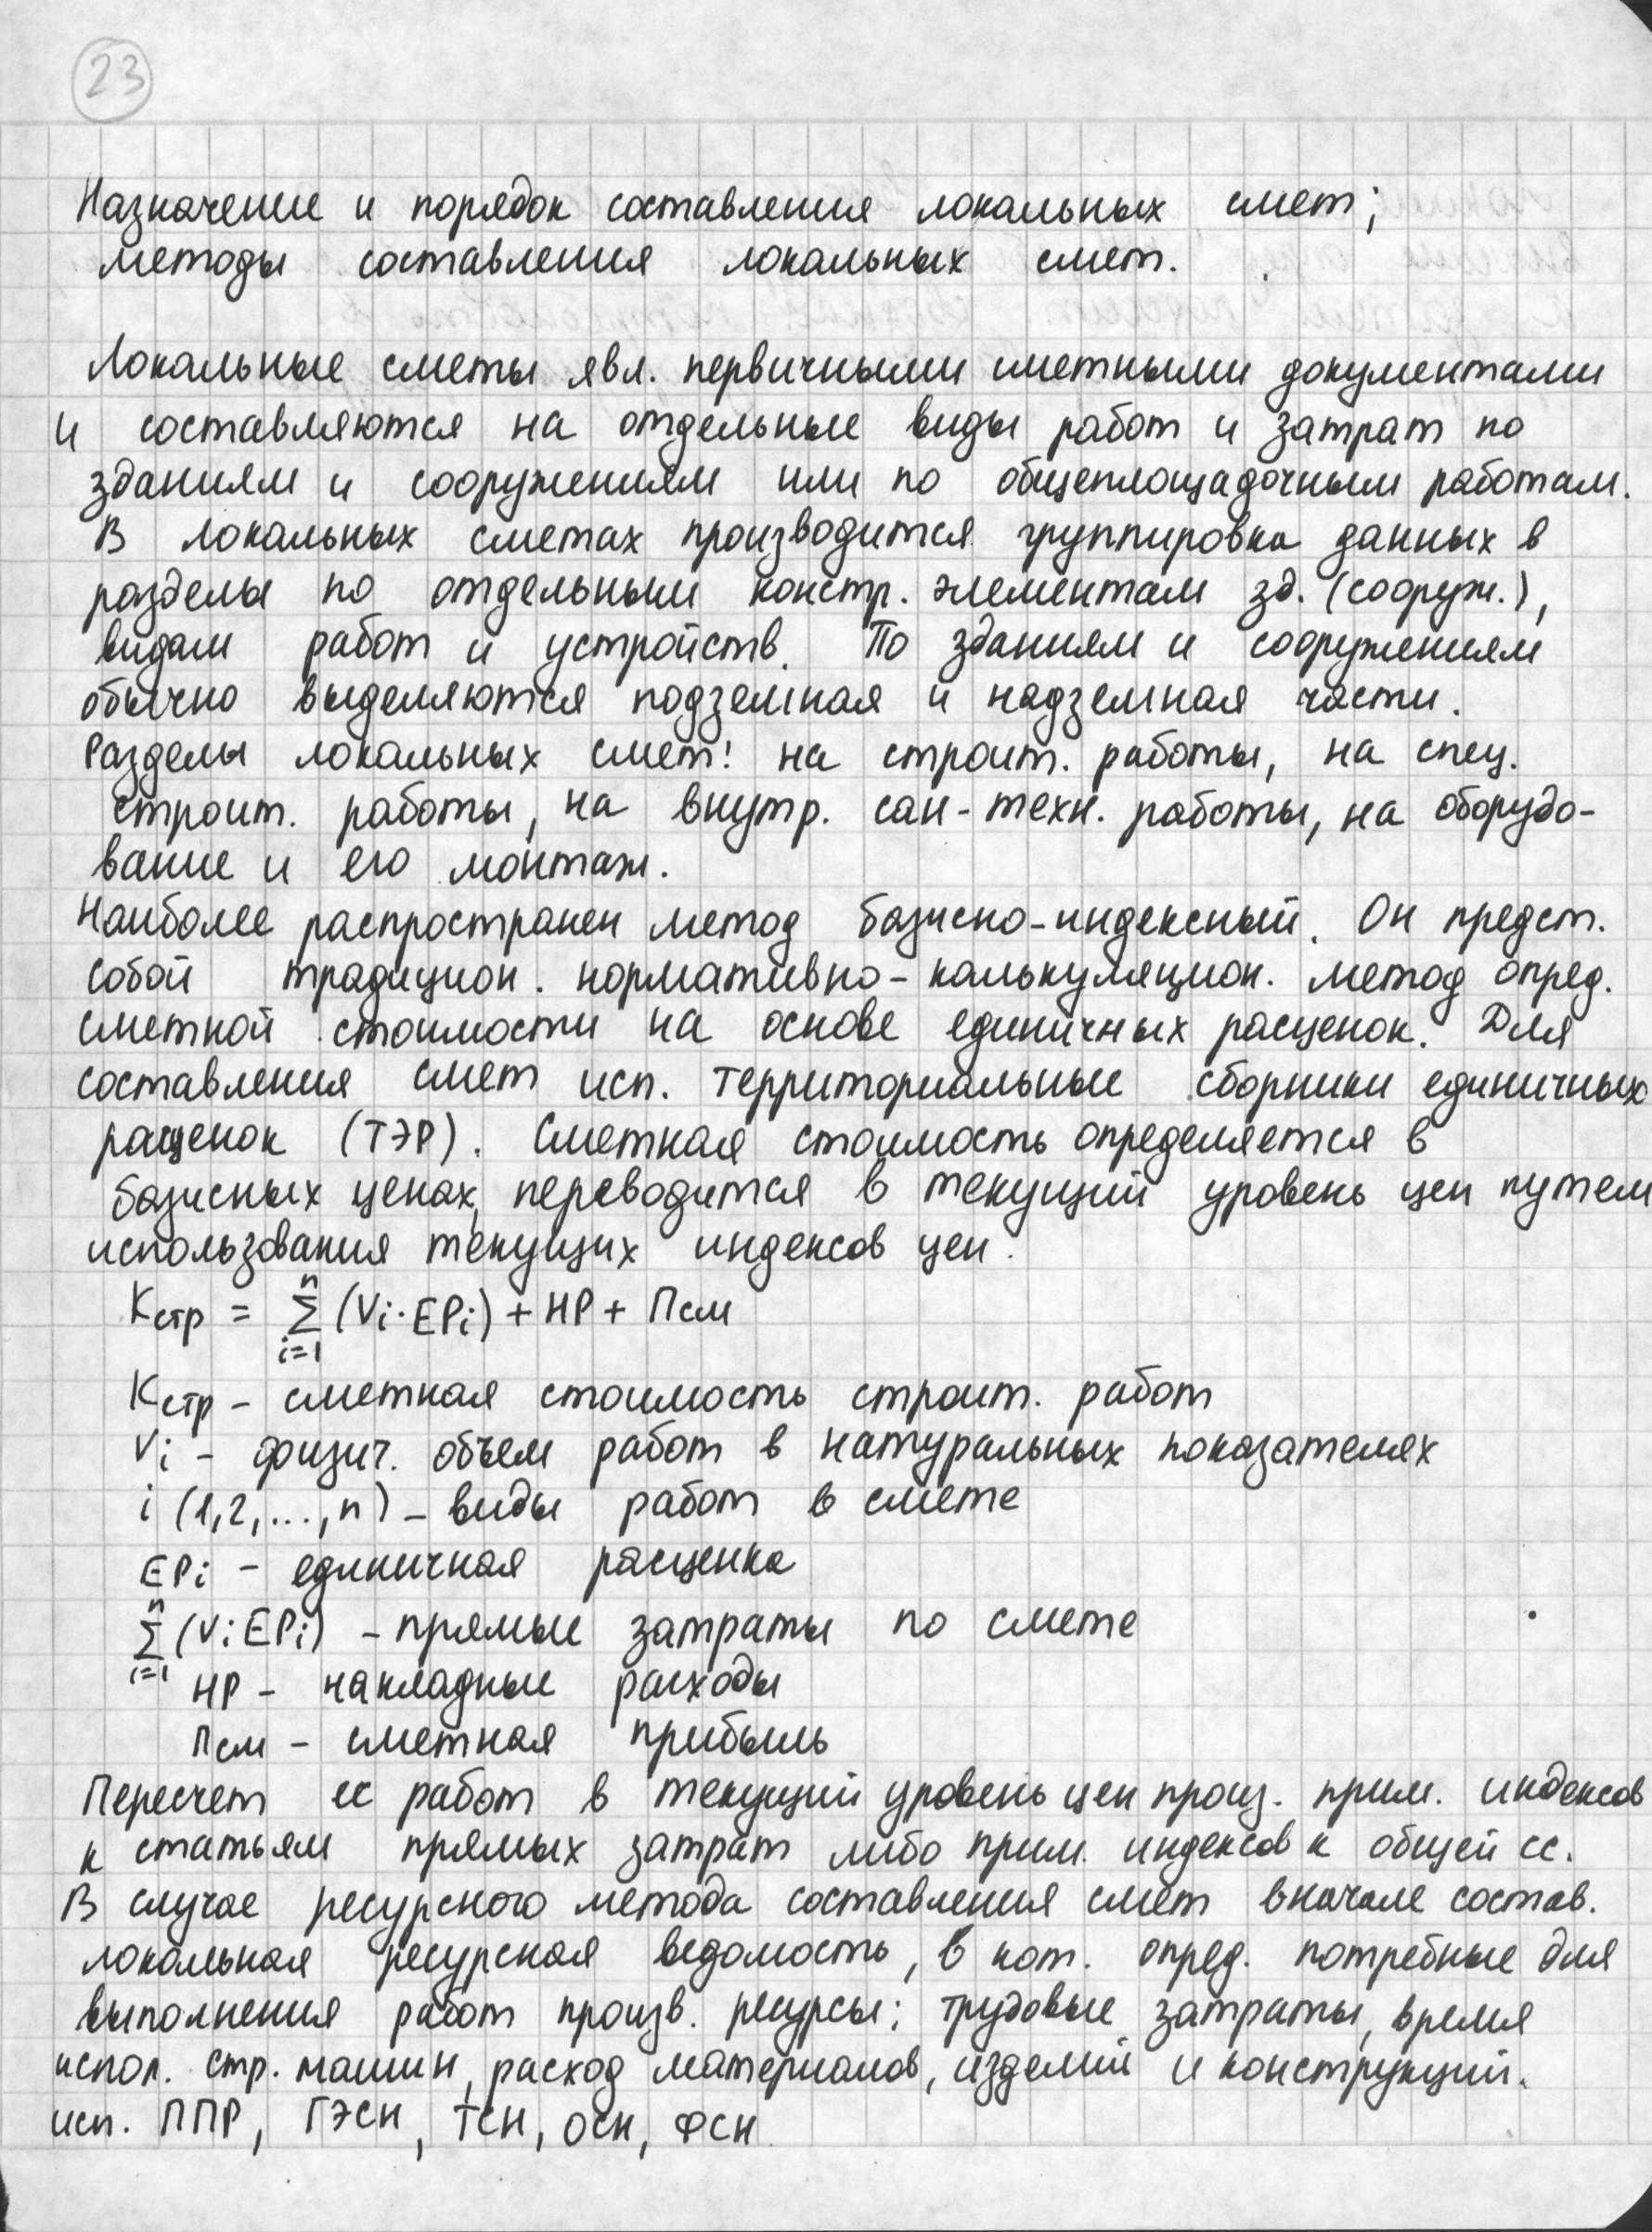 23
Назначение и порядок составления локальных смет;
методы составления локальных смет.
Локальные сметы явл. первичными сметными документами
и составляются на отдельные виды работ и затрат по
зданиям и сооружениям или по общеплощадочным работам.
В локальных сметах производится группировка данных в
разделы по отдельным констр. элементам зд. (сооруж.),
видам работ и устройств. По зданиям и сооружениям
обычно выделяются подземная и надземная части.
Разделы локальных смет: на строит. работы, на спец.
строит. работы, на внутр. сан-техн. работы, на оборудо-
вание и его монтаж.
Наиболее распространен метод базисно-индексный. Он предст.
собой традицион. нормативно-калькуляцион. метод опред.
сметной стоимости на основе единичных расценок. Для
составления смет исп. территориальные сборники единичных
расценок (ТЭР). Сметная стоимость определяется в
базисных ценах, переводится в текущий уровень цен путем
использования текущих индексов цен.
Кстр = n∑i=1 (Vi·EPi) + НР + Псм
Кстр – сметная стоимость строит. работ
Vi – физич. объем работ в натуральных показателях
i (1,2,...,n) – виды работ в смете
EPi – единичная расценка
n∑i=1 (Vi EPi) – прямые затраты по смете
НР – накладные расходы
Псм – сметная прибыль
Пересчет сс работ в текущий уровень цен произ. прим. индексов
к статьям прямых затрат либо прим. индексов к общей сс.
В случае ресурсного метода составления смет вначале состав.
локальная ресурсная ведомость, в кот. опред. потребные для
выполнения работ произв. ресурсы: трудовые затраты, время
испол. стр. машин, расход материалов, изделий и конструкций.
исп. ППР, ГЭСН, ТСН, ОСН, ФСН